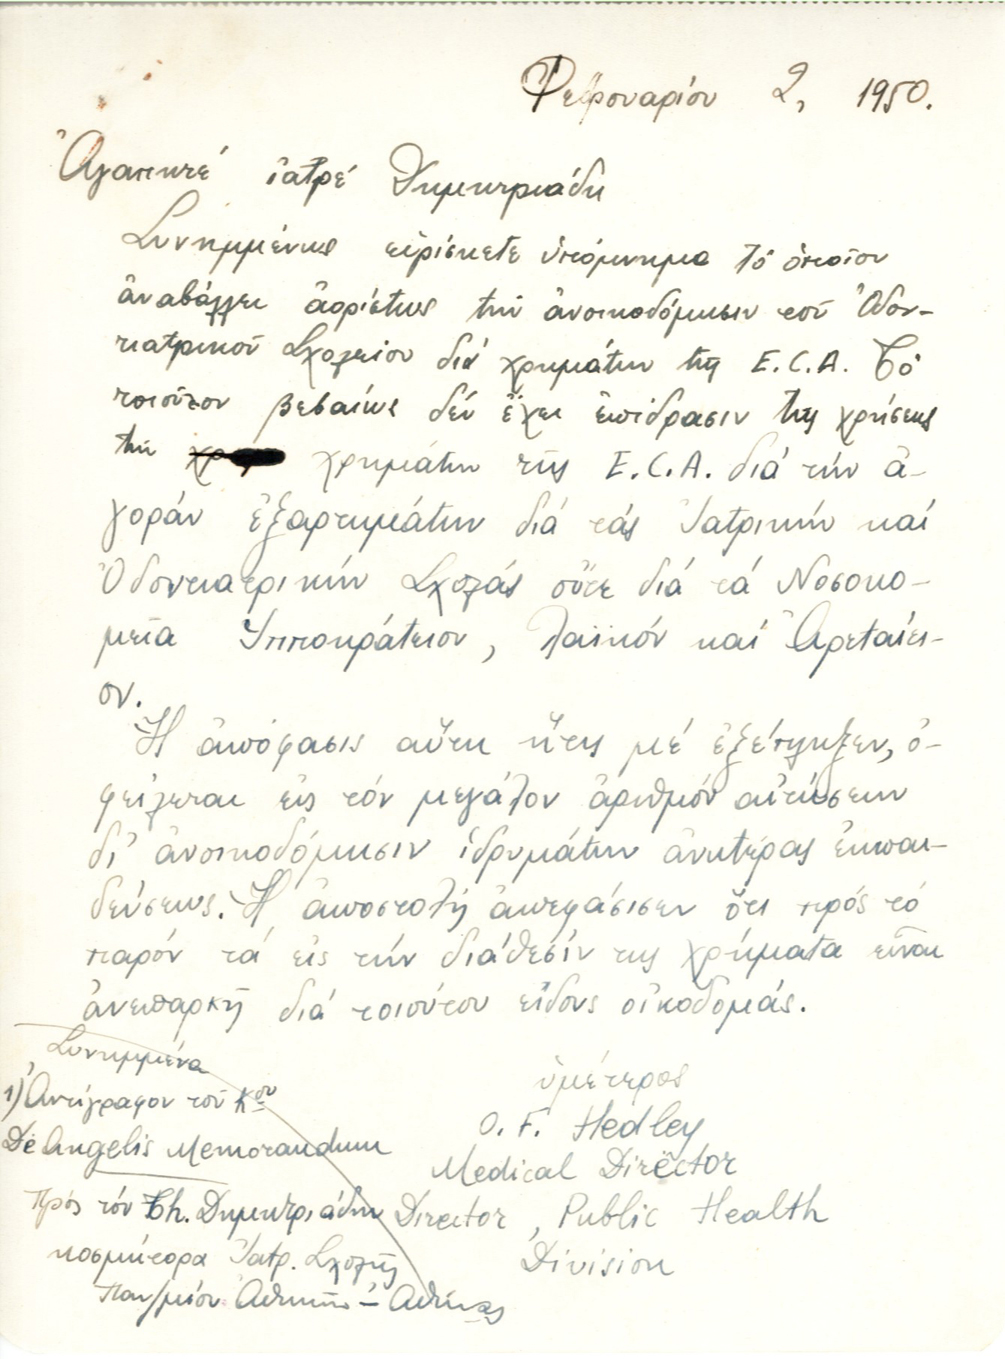 Φεβρουαρίου 2, 1950.
Ἀγαπητέ ἰατρέ Δημητριάδη
Συνημμένως εὑρίσκετε ὑπόμνημα τό ὁποῖον
ἀναβάλλει ἀορίστως τήν ἀνοικοδόμησιν τοῦ Ὀδον-
τιατρικοῦ Σχολείου διά χρημάτων τῆς E.C.A. Τό
τοιοῦτον βεβαίως δέν ἔχει ἐπίδρασιν τῆς χρήσεως
τήν χρημάτων τῆς E.C.A. διά τήν ἀ-
γοράν ἐξαρτημάτων διά τάς Ἰατρικήν καί
Ὀδοντιατρικήν Σχολάς οὔτε διά τά Νοσοκο-
μεῖα Ἱπποκράτειον, Λαϊκόν καί Ἀρεταίει-
ον.
Ἡ ἀπόφασις αὕτη ἥτις μέ ἐξέπληξεν, ὀ-
φείλεται εἰς τόν μεγάλον ἀριθμόν αἰτήσεων
δι' ἀνοικοδόμησιν ἱδρυμάτων ἀνωτέρας ἐκπαι-
δεύσεως. Ἡ ἀποστολή ἀπεφάσισεν ὅτι πρός τό
παρόν τά εἰς τήν διάθεσίν της χρήματα εἶναι
ἀνεπαρκῆ διά τοιούτου εἴδους οἰκοδομάς.
ὑμέτερος
O. F. Hedley
Medical Director
Director, Public Health
Division
Συνημμένα
1) Ἀντίγραφον τοῦ Κου
De Angelis Memorandum
Πρός τόν Th. Δημητριάδην
κοσμήτορα Ἰατρ. Σχολῆς
Παν/μίου Ἀθηνῶν - Ἀθήνας